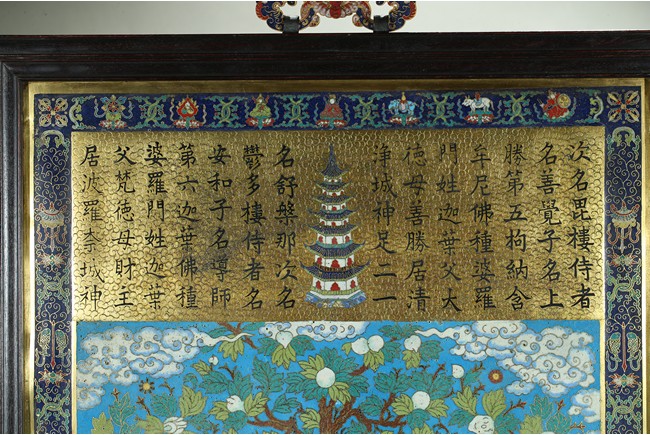 次名毘樓侍者
名善覺子名上
勝第五枸納含
牟尼佛種婆羅
門姓迦葉父大
德母善勝居清
淨城神足二一
名舒槃那次名
鬱多樓侍者名
安和子名導師
第六迦葉佛種
婆羅門姓迦葉
父梵德母財主
居波羅柰城神